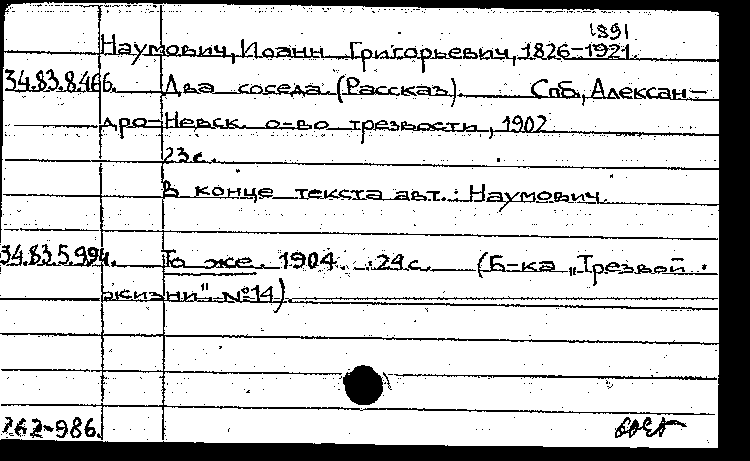 1891
Наумович, Иоанн Григорьевич, 1826-1921.
34.83.8.466. Два соседа. (Рассказ). Спб., Алексан-
дро-Невск. о-во трезвости, 1902
23 с.
В конце текста авт.: Наумович.
34.83.5.994. То же. 1904. 24 с. (Б-ка „Трезвой
жизни" №14).
262-986.